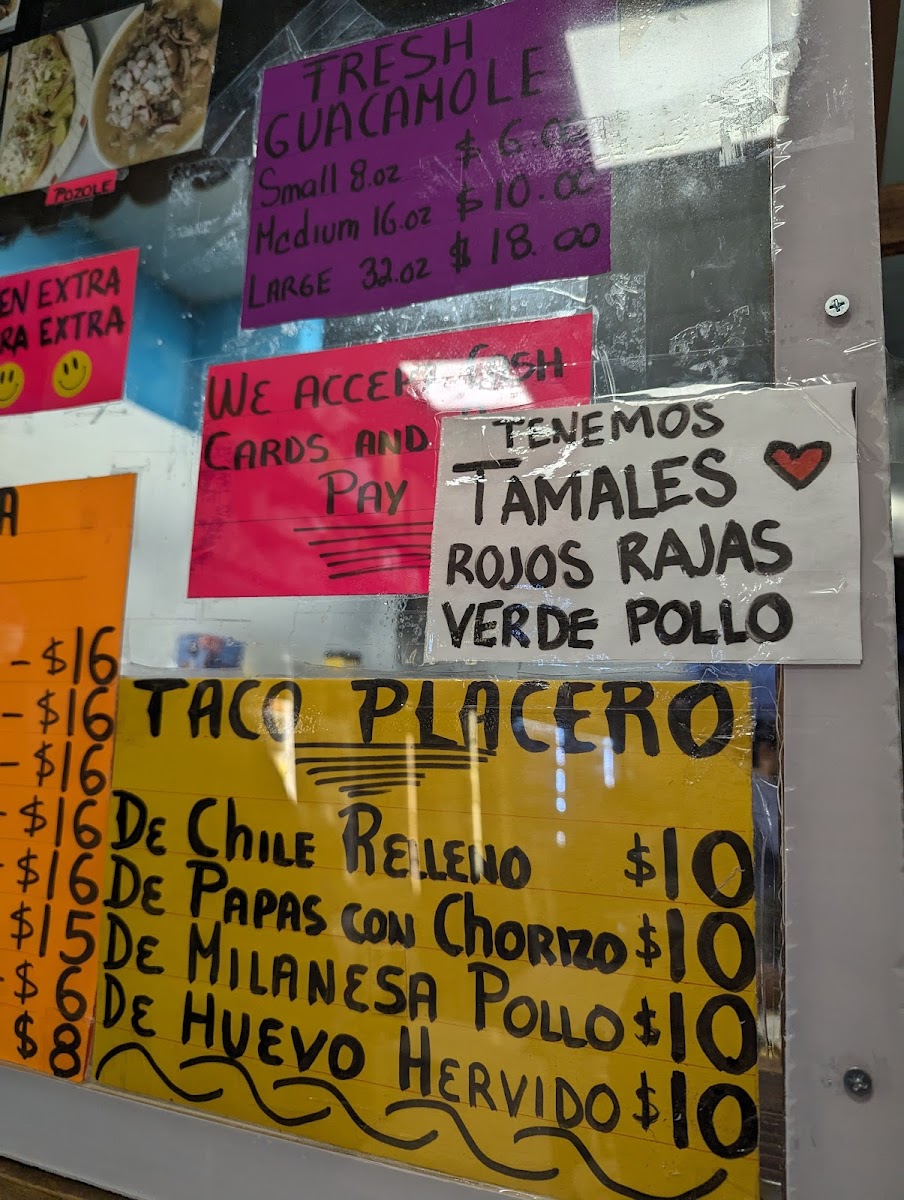 POZOLE
FRESH
GUACAMOLE
Small 8.oz $6.00
Medium 16.oz $10.00
LARGE 32.oz $18.00
EN EXTRA
RA EXTRA
WE ACCEPT CASH
CARDS AND
PAY
TENEMOS
TAMALES
ROJOS RAJAS
VERDE POLLO
A
- $16
- $16
- $16
- $16
- $16
$15
- $6
$8
TACO PLACERO
DE CHILE RELLENO $10
DE PAPAS CON CHORIZO $10
DE MILANESA POLLO $10
DE HUEVO HERVIDO $10